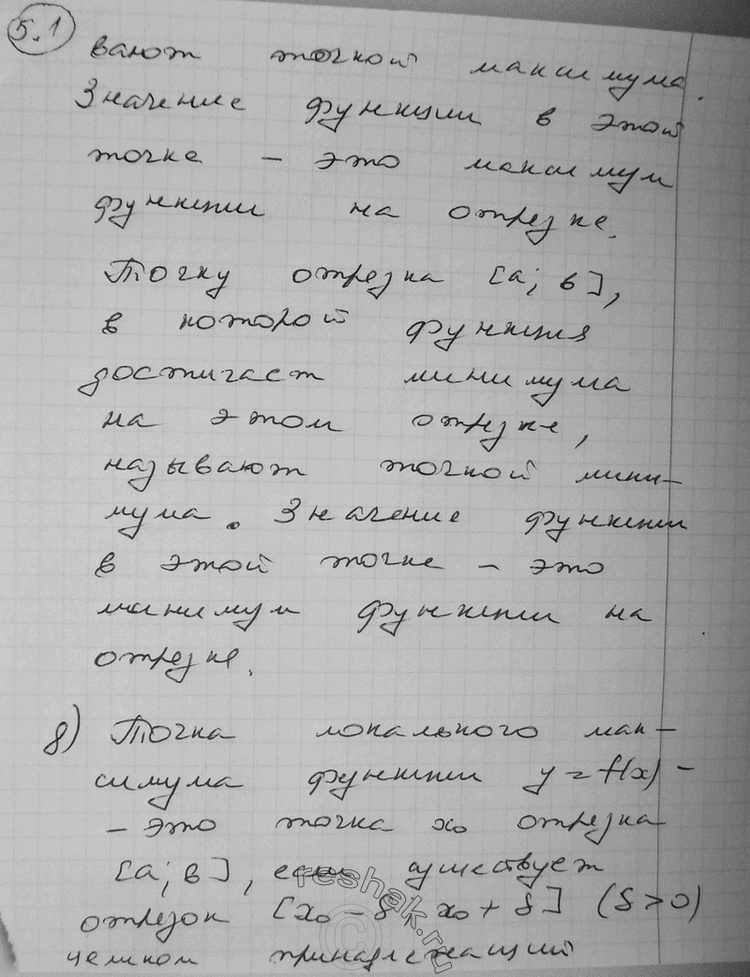 5.1
вают точкой максимума.
Значение функции в этой
точке – это максимум
функции на отрезке.
Точку отрезка [a; в],
в которой функция
достигает минимума
на этом отрезке,
называют точкой мини–
мума. Значение функции
в этой точке – это
минимум функции на
отрезке.
в) Точка локального мак–
симума функции y = f(x) –
– это точка x₀ отрезка
[a; в], если существует
отрезок [x₀ – δ x₀ + δ] (δ > 0)
целиком принадлежащий
reshak.ru